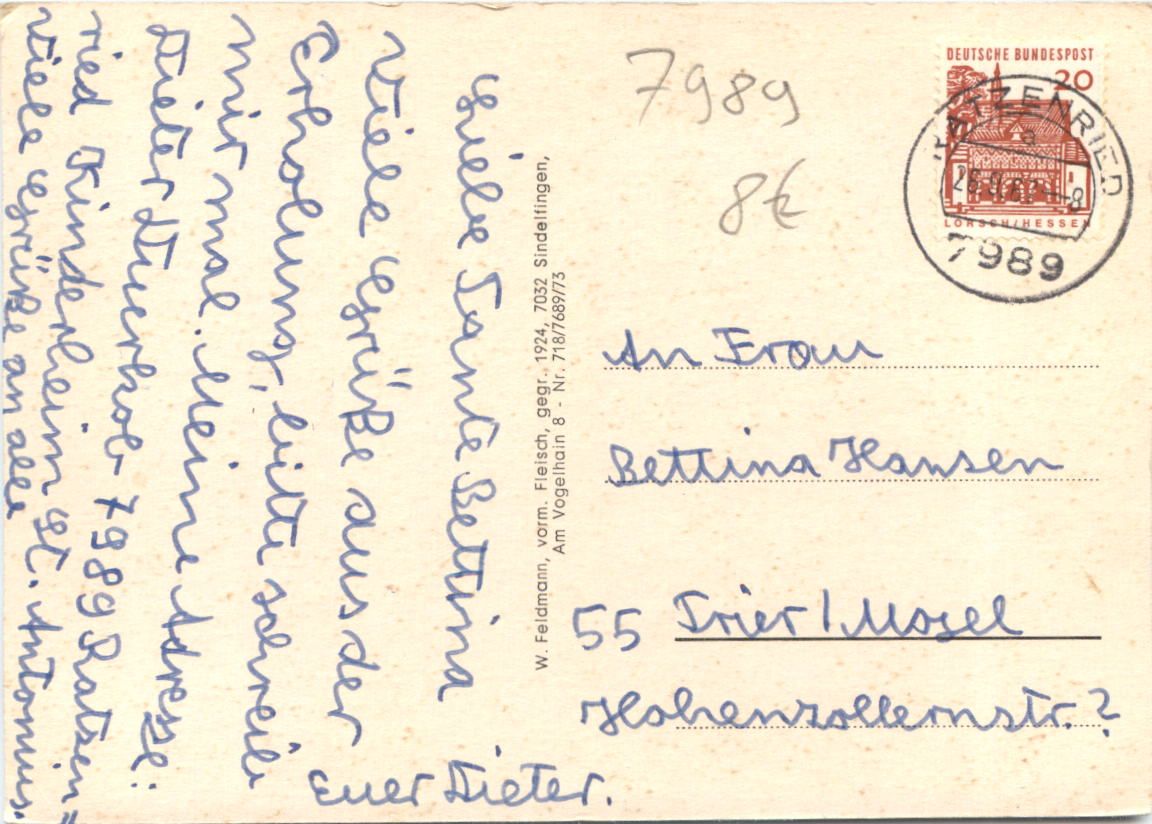 Liebe Tante Bettina
Viele Grüße aus der
Erholung, bitte schreib
mir mal. Meine Adresse:
Dieter 7989 Ratzen=
ried Kinderheim St. Antonius.
Viele Grüße an alle
Euer Dieter.
W. Feldmann, vorm. Fleisch, gegr. 1924, 7032 Sindelfingen,
Am Vogelhain 8 - Nr. 718/7689/73
7989
8€
DEUTSCHE BUNDESPOST
20
LORSCH/HESSEN
RATZENRIED
a
7989
An Frau
Bettina Hansen
55 Trier/Mosel
Hohenzollernstr. ?